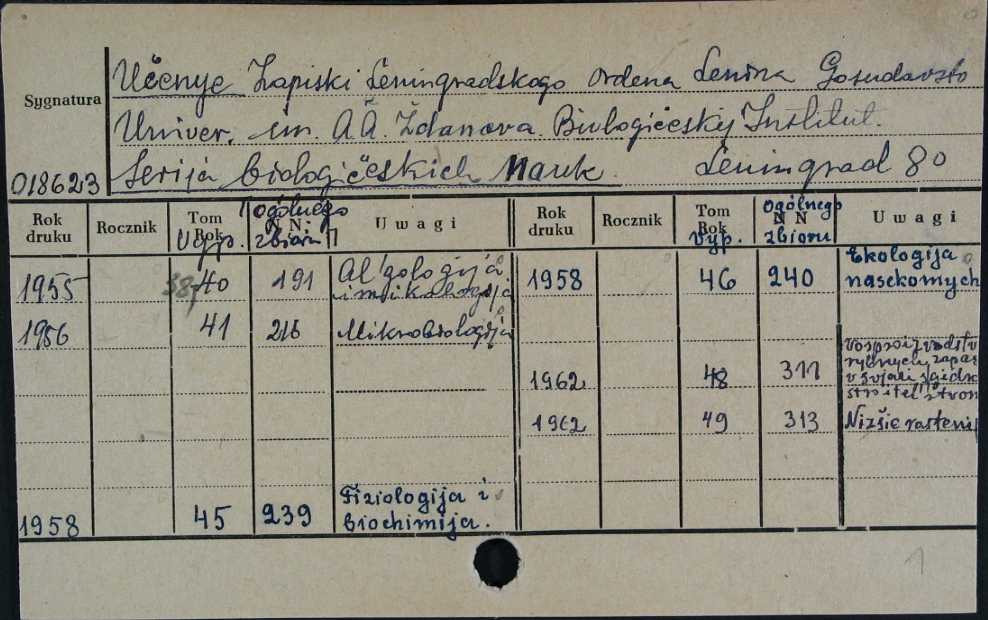 Učenye Zapiski Leningradskogo ordena Lenina Gosudarstv
Sygnatura
Univer. im. A.A. Ždanova. Biologičeskij Institut.
018623 Serija biologičeskich Nauk. Leningrad 80
Rok druku Rocznik Tom Rok Vyp. N N ogólnego zbioru Uwagi Rok druku Rocznik Tom Rok Vyp. N N ogólnego zbioru Uwagi
1955 40 191 Al'gologija i mikologija
1958 46 240 Ekologija nasekomych
1956 41 216 Mikrobiologija
1962 48 311 vosproizvodstv rybnych zapas v svjazi s gidro stroitel'stvom
1962 49 313 Nizšie rastenij
1958 45 239 Fiziologija i biochimija.
1